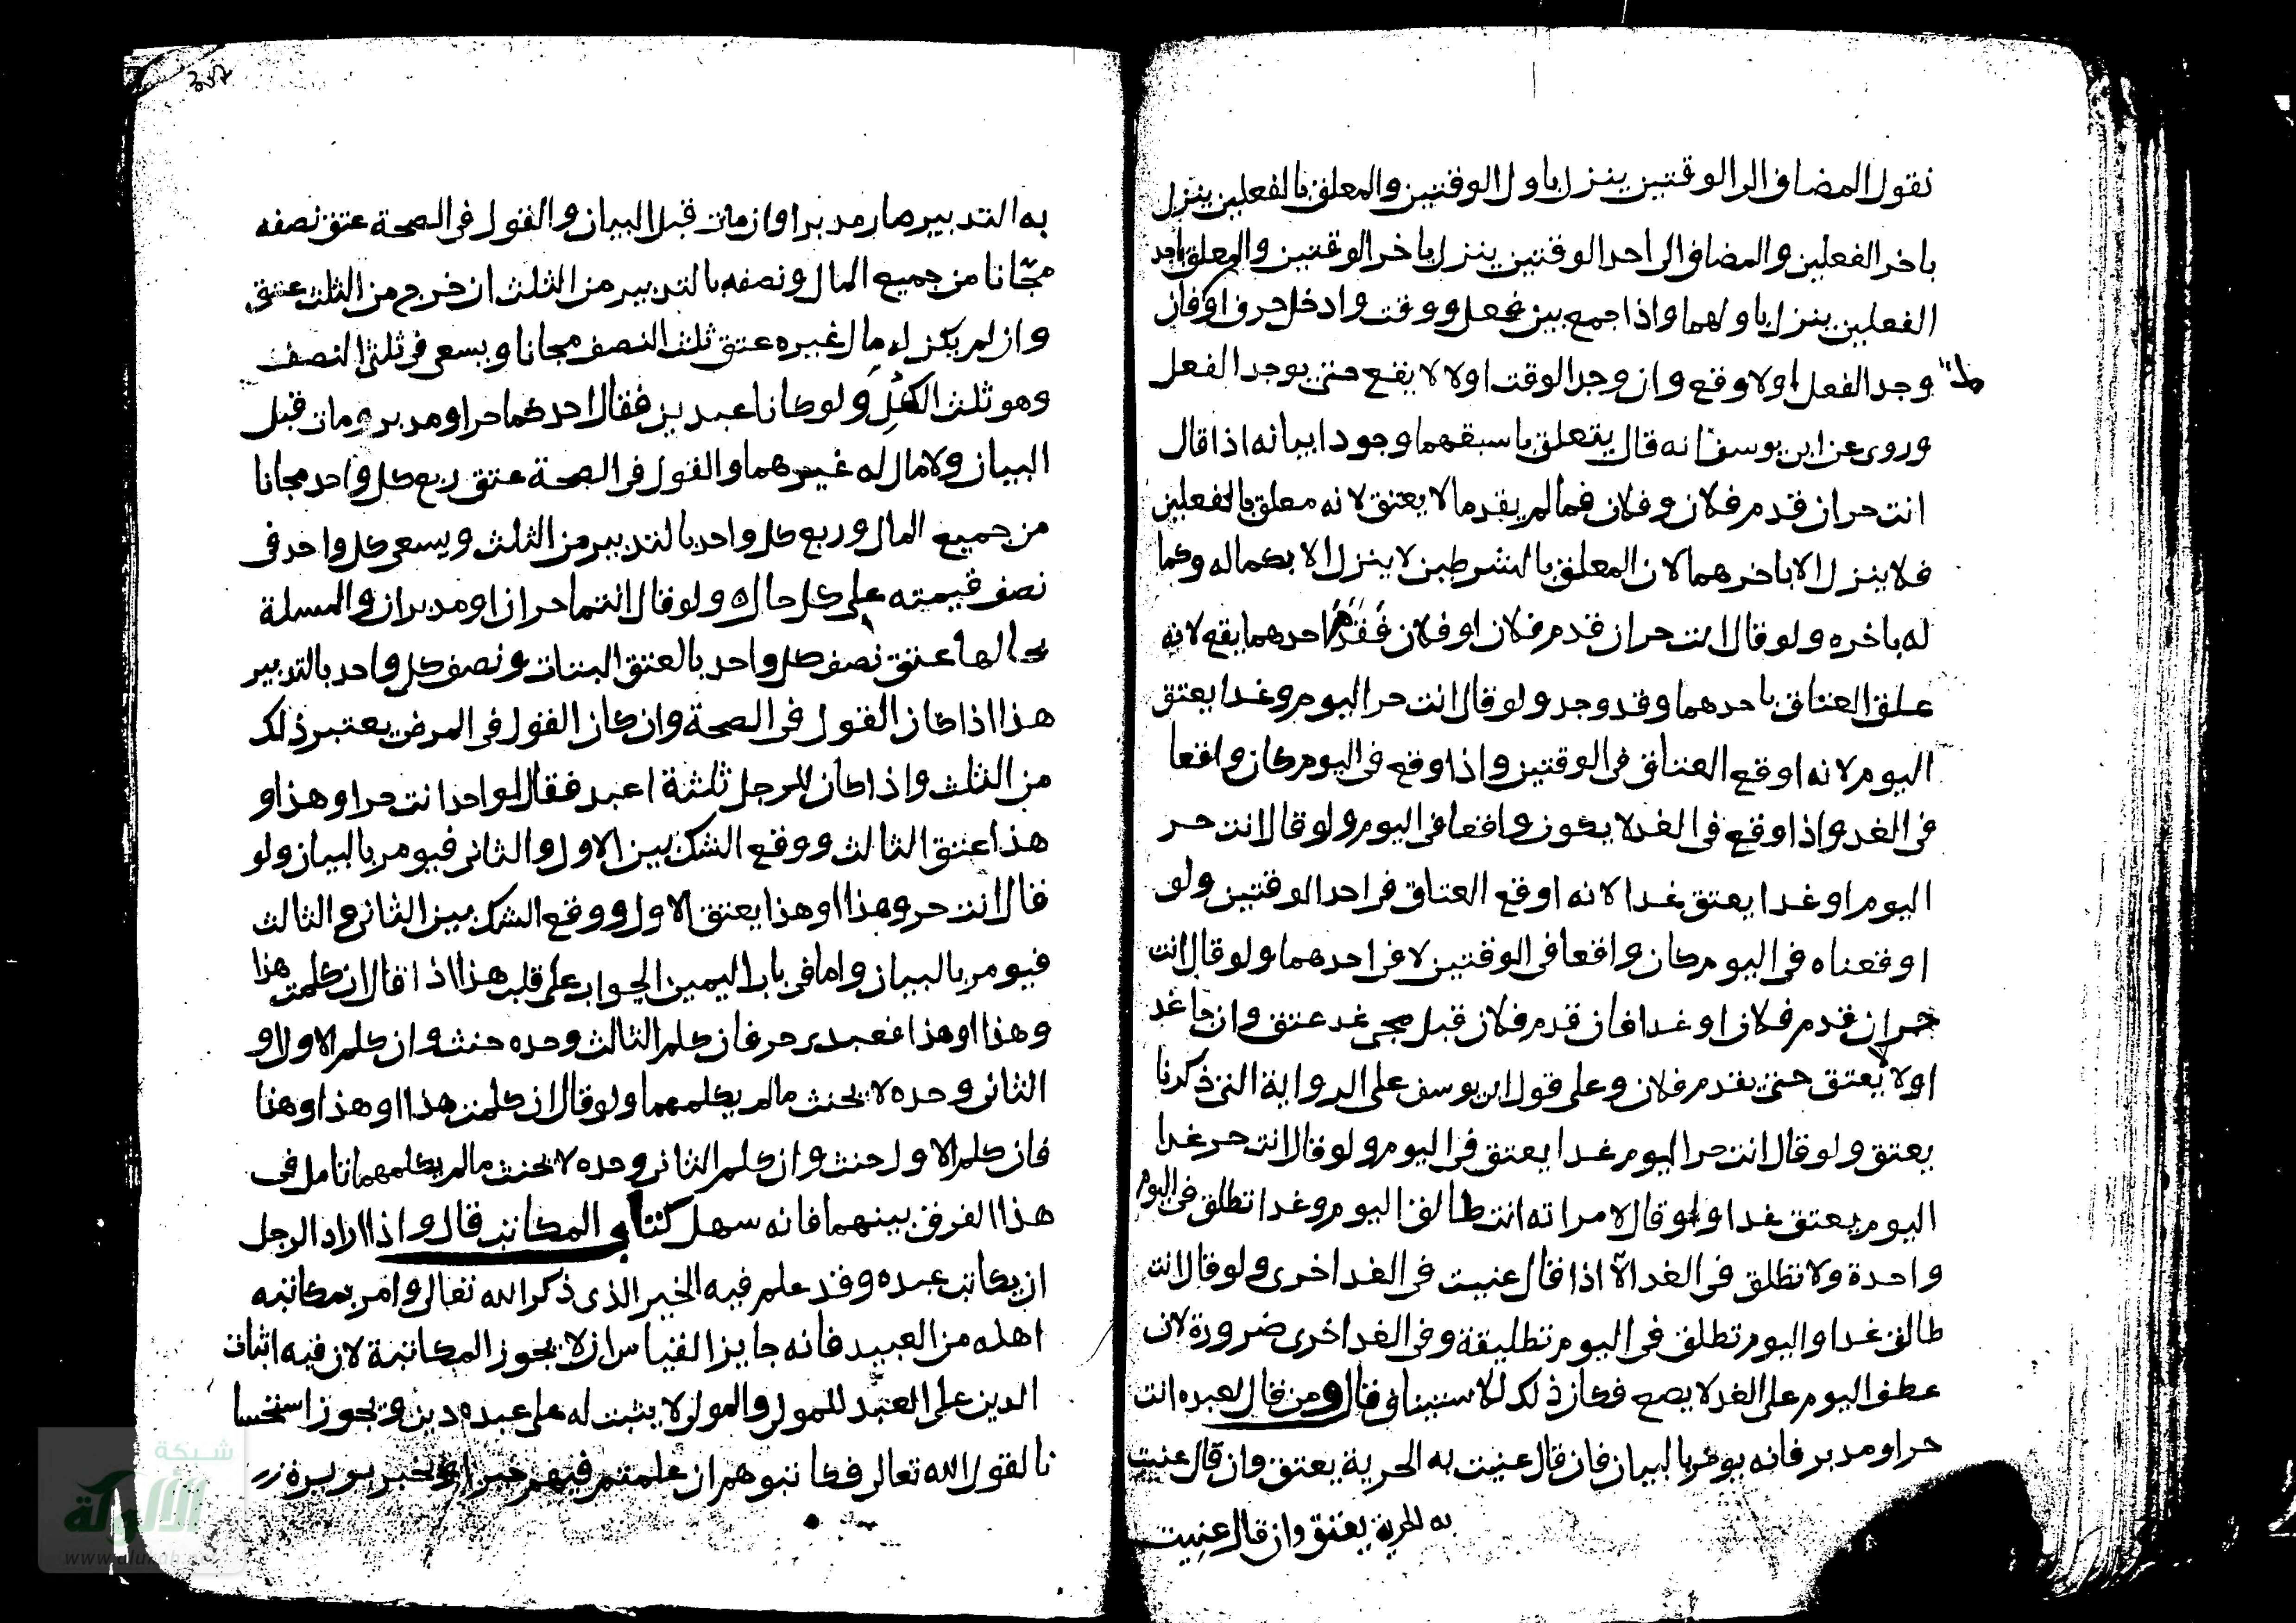 نقول المضاف الى الوقتين ينزل باول الوقتين والمعلق بالفعلين ينزل
باخر الفعلين والمضاف الى احد الوقتين ينزل باخر الوقتين والمعلق باحد
الفعلين ينزل باولهما واذا جمع بين فعل ووقت وادخل حرف او فان
وجد الفعل اولا وقع وان وجد الوقت اولا لا يقع حتى يوجد الفعل
وروى عن ابى يوسف انه قال يتعلق باسبقهما وجودا بيانه اذا قال
انت حر ان قدم فلان وفلان فما لم يقدما لا يعتق لانه معلق بالفعلين
فلا ينزل الا باخرهما لان المعلق بالشرطين لا ينزل الا بكماله وكما
له باخره ولو قال انت حر ان قدم فلان او فلان فقدم احدهما يقع لانه
علق العتاق باحدهما وقد وجد ولو قال انت حر اليوم وغدا يعتق
اليوم لانه اوقع العتاق فى الوقتين واذا وقع فى اليوم كان واقعا
فى الغد واذا وقع فى الغد لا يكون واقعا فى اليوم ولو قال انت حر
اليوم او غدا يعتق غدا لانه اوقع العتاق فى احد الوقتين ولو
اوقعناه فى اليوم كان واقعا فى الوقتين لا فى احدهما ولو قال انت
حر ان قدم فلان او غدا فان قدم فلان قبل مجى غد عتق وان جا غد
اولا لا يعتق حتى يقدم فلان وعلى قول ابى يوسف على الرواية التى ذكرنا
يعتق ولو قال انت حر اليوم غدا يعتق فى اليوم ولو قال انت حر غدا
اليوم يعتق غدا ولو قال لامراته انت طالق اليوم وغدا تطلق فى اليوم
واحدة ولا تطلق فى الغد الا اذا قال عنيت فى الغد اخرى ولو قال انت
طالق غدا واليوم تطلق فى اليوم تطليقة وفى الغد اخرى ضرورة لان
عطف اليوم على الغد لا يصح فكان ذلك للاستيناف قال ومن قال لعبده انت
حر او مدبر فانه يومر بالبيان فان قال عنيت به الحرية يعتق وان قال عنيت
به الحرية يعتق وان قال عنيت
به التدبير صار مدبرا وان مات قبل البيان والقول فى الصحة عتق نصفه
مجانا من جميع المال ونصفه بالتدبير من الثلث ان خرج من الثلث عتق
وان لم يكن له مال غيره عتق ثلث النصف مجانا ويسعى فى ثلثى النصف
وهو ثلث الكل ولو كانا عبدين فقال احدكما حر او مدبر ومات قبل
البيان ولا مال له غيرهما والقول فى الصحة عتق ربع كل واحد مجانا
من جميع المال وربع كل واحد بالتدبير من الثلث ويسعى كل واحد فى
نصف قيمته على كل حال ولو قال انتما حران او مدبران والمسلة
بحالها عتق نصف كل واحد بالعتق البتات ونصف كل واحد بالتدبير
هذا اذا كان القول فى الصحة وان كان القول فى المرض يعتبر ذلك
من الثلث واذا كان للرجل ثلثة اعبد فقال لواحد انت حر او هذا و
هذا عتق الثالث ووقع الشك بين الاول والثانى فيومر بالبيان ولو
قال انت حر وهذا او هذا يعتق الاول ووقع الشك بين الثانى والثالث
فيومر بالبيان واما فى باب اليمين الجواب على قلب هذا اذا قال ان كلمت هذا
وهذا او هذا فعبدى حر فان كلم الثالث وحده حنث وان كلم الاول او
الثانى وحده لا يحنث ما لم يكلمهما ولو قال ان كلمت هذا او هذا وهذا
فان كلم الاول حنث وان كلم الثانى وحده لا يحنث ما لم يكلمهما تامل فى
هذا الفرق بينهما فانه سهل كتاب المكاتب قال واذا اراد الرجل
ان يكاتب عبده وقد علم فيه الخير الذى ذكر الله تعالى وامر بمكاتبه
اهله من العبيد فانه جايز القياس ان لا يجوز المكاتبة لان فيه اثبات
الدين على العبد للمولى والمولى لا يثبت له على عبده دين ويجوز استحسا
نا لقول الله تعالى فكاتبوهم ان علمتم فيهم خيرا وخبر بريرة
شبكة
الألوكة